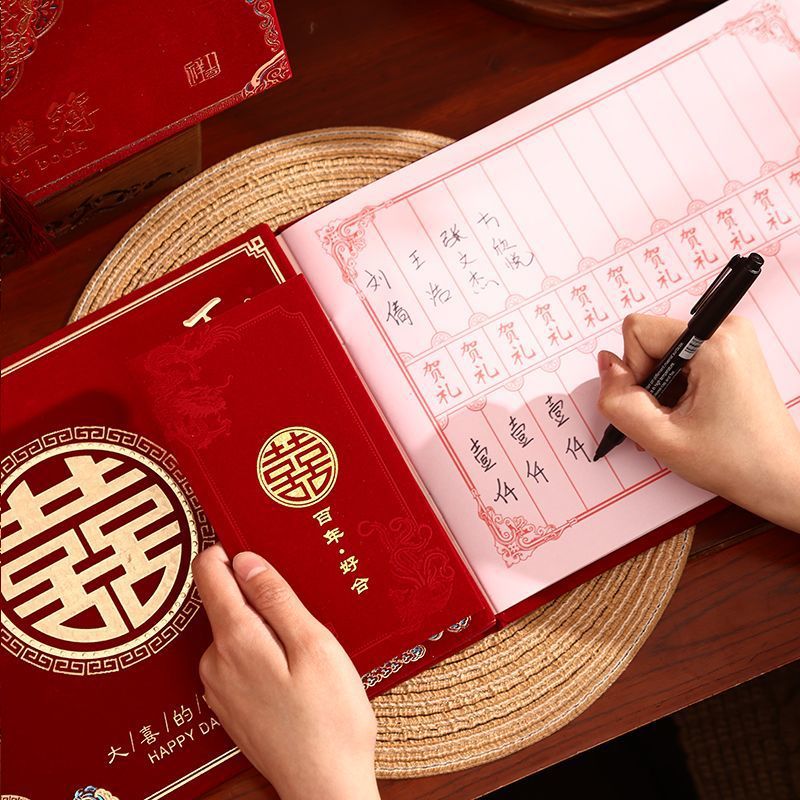 禮簿
st book
刘倩
王浩
张文杰
方欣悦
贺礼
贺礼
贺礼
贺礼
贺礼
贺礼
贺礼
贺礼
贺礼
贺礼
贺礼
壹仟
壹仟
壹仟
囍
百年·好合
囍
大/喜/的/
HAPPY DA